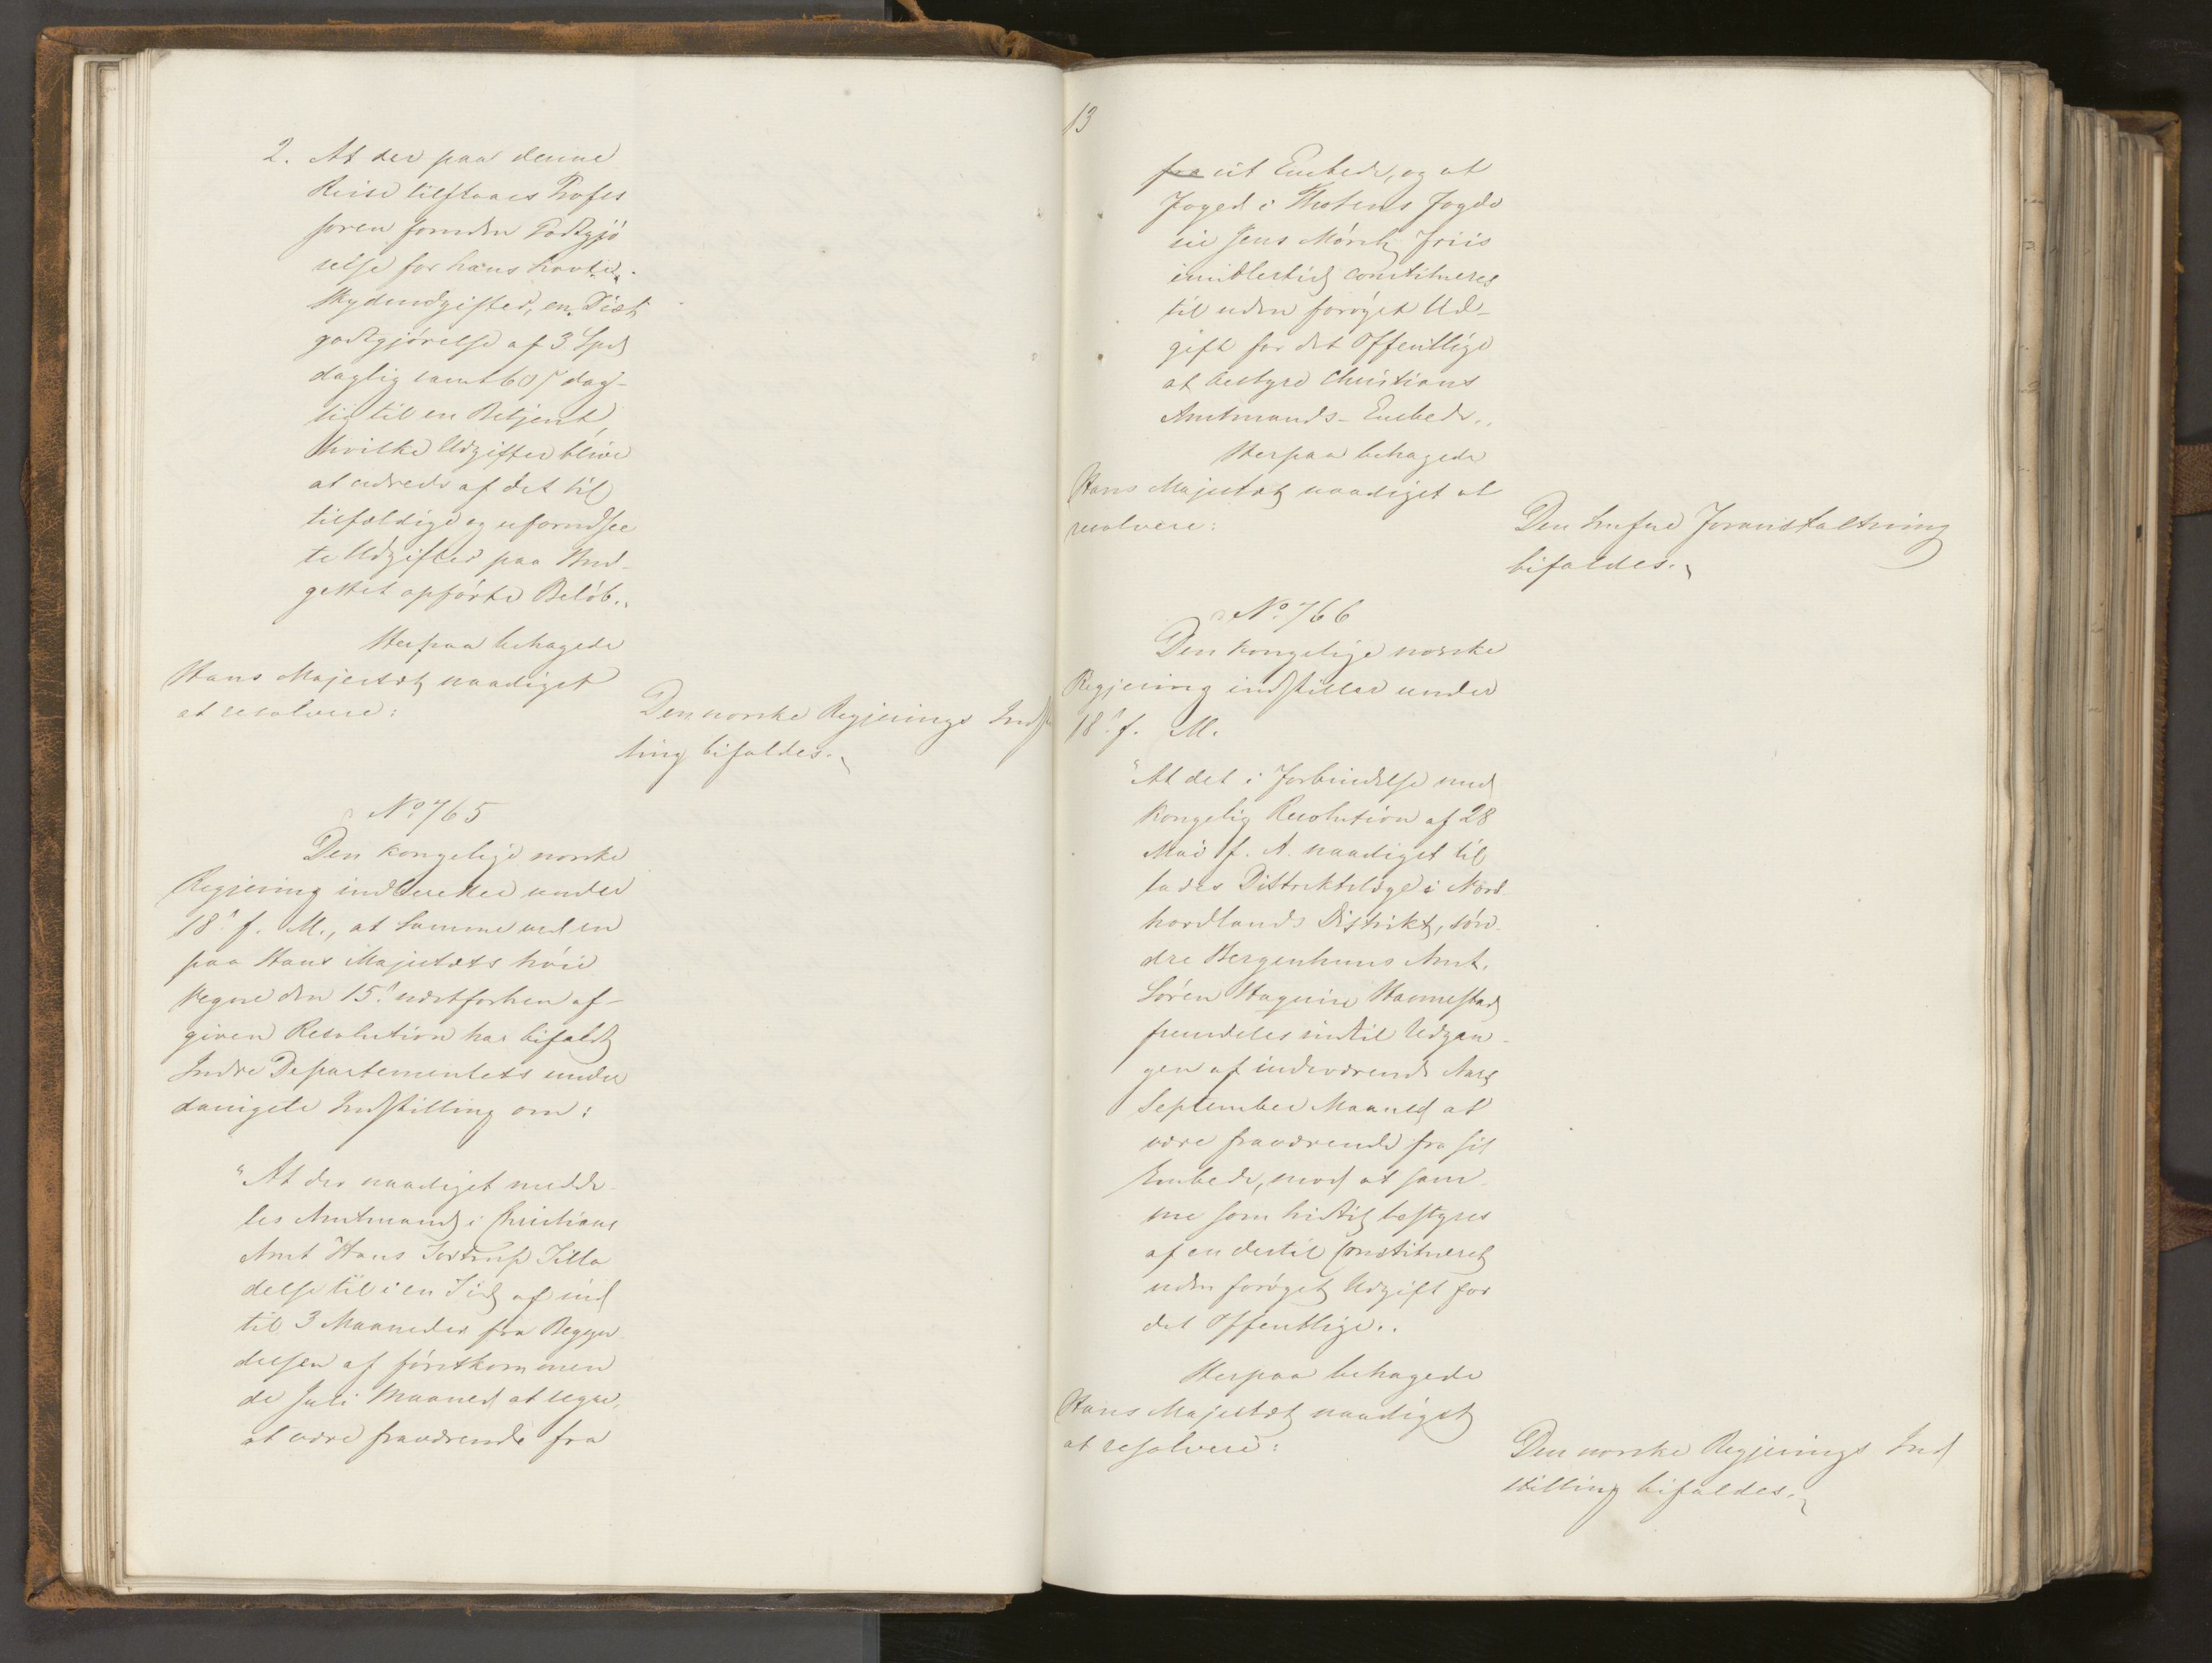 2. At der paa denne
Reise tilstaaes Profes
soren foruden Godtgjö
relse for hans
Skydsudgifter, en Diæt
godtgjörelse af 3 Spd
daglig samt 60 s dag-
lig til en Betjent,
hvilke Udgifter blive
at udrede af det til
tilfældige og uforudsee
te Udgifter paa Bud-
gettet opförte Belöb.„
Herpaa behagede
Hans Majestæt naadigst
at resolvere:
Den norske Regjerings Indstil
ling bifaldes.
No 765
Den kongelige norske
Regjering indberetter under
18. f. M., at samme ved en
paa Hans Majestæts höie
Vegne den 15. næstforhen af-
given Resolution har bifaldt
Indre Departementets under
danigste Indstilling om:
"At der naadigst medde-
les Amtmand i Christians
Amt Hans Tostrup Tilla
delse til i en Tid af ind
til 3 Maaneder fra Begyn
delsen af förstkommen
de Juli Maaned at regne,
at være fraværende fra
13
fra sit Embede, og at
Foged i Thotens Fogde
rie Jens Mörch Friis
imidlertid constitueres
til uden foröget Ud-
gift for det Offentlige
at bestyre Christians
Amtmands-Embede.„
Herpaa behagede
Hans Majestæt naadigst at
resolvere:
Den trufne Foranstaltning
bifaldes.
No 766
Den kongelige norske
Regjering indstiller under
18. f. M.
"At det i Forbindelse med
kongelig Resolution af 28
Mai f. A. naadigst til
lades Distriktslæge i Nord
hordlands Distrikt, sön-
dre Bergenhuus Amt,
Sören Hagerup Hannestad
fremdeles indtil Udgan-
gen af indeværende Aars
September Maaned at
være fraværende fra sit
Embede, mod at sam-
me som hidtil bestyres
af en dertil Constitueret
uden foröget Udgift for
det Offentlige.„
Herpaa behagede
Hans Majestæt naadigst
at resolvere:
Den norske Regjerings Ind
stilling bifaldes.